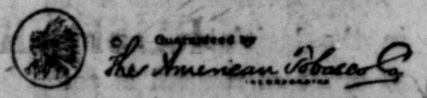 Guaranteed by
The American Tobacco Co.
INCORPORATED